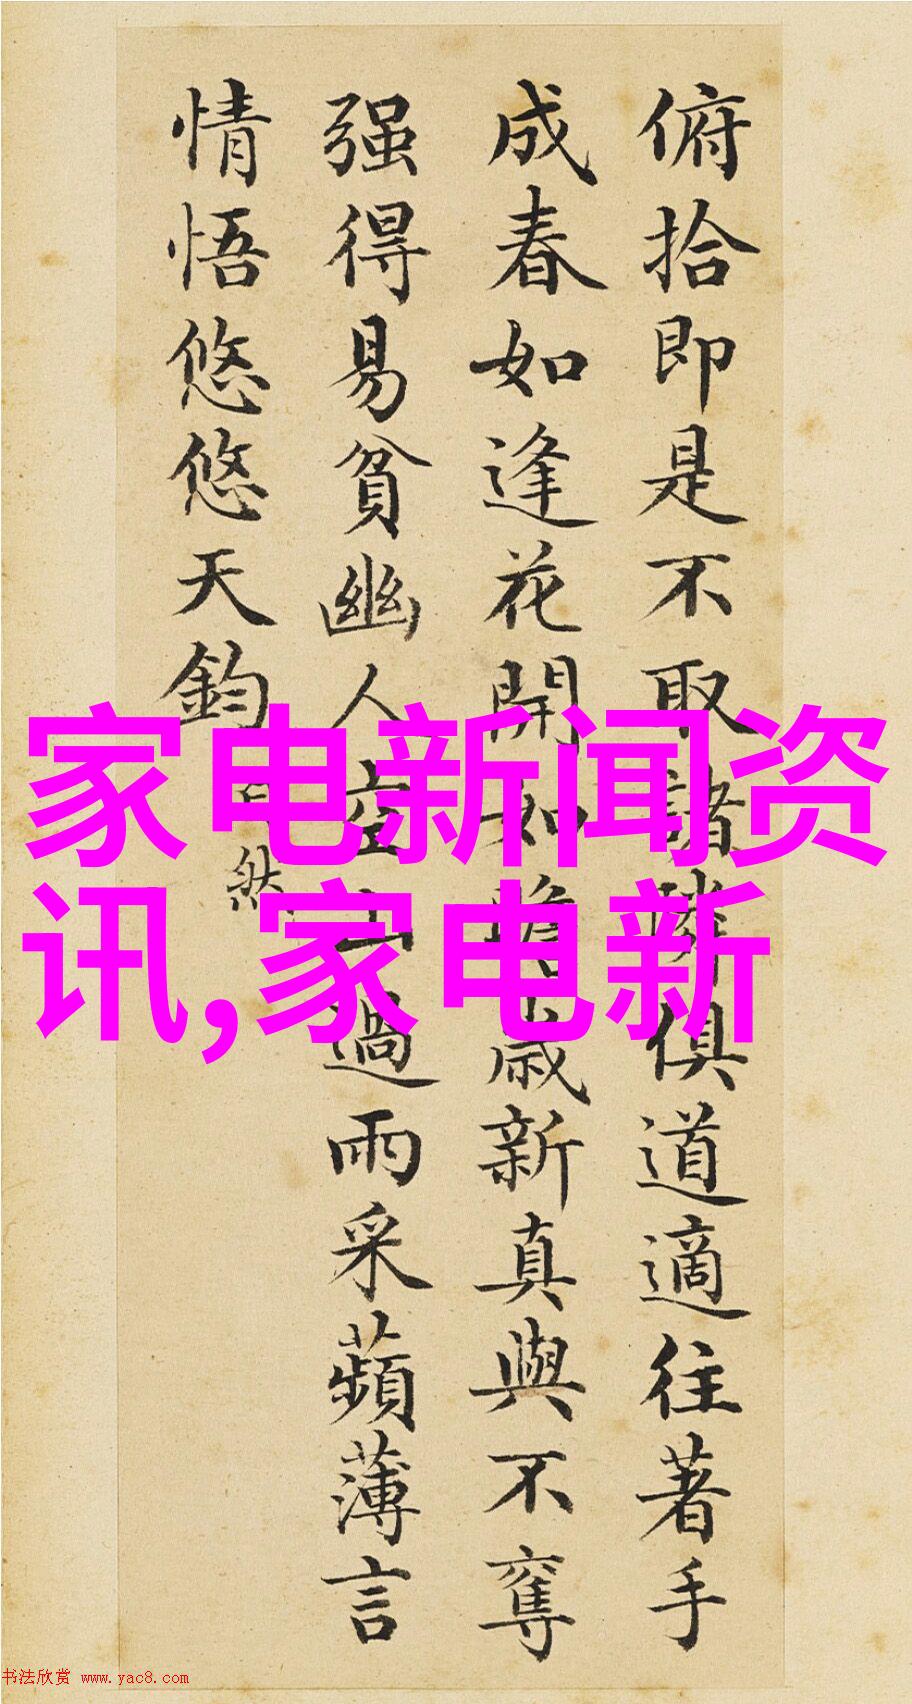 俯拾即是不取諸隣俱道適往著手
成春如逢花開如瞻歲新真與不奪
强得易貧幽人空山過雨采蘋薄言
情悟悠悠天鈞
自然
家电新闻资
讯,家电新
书法欣赏 www.yac8.com